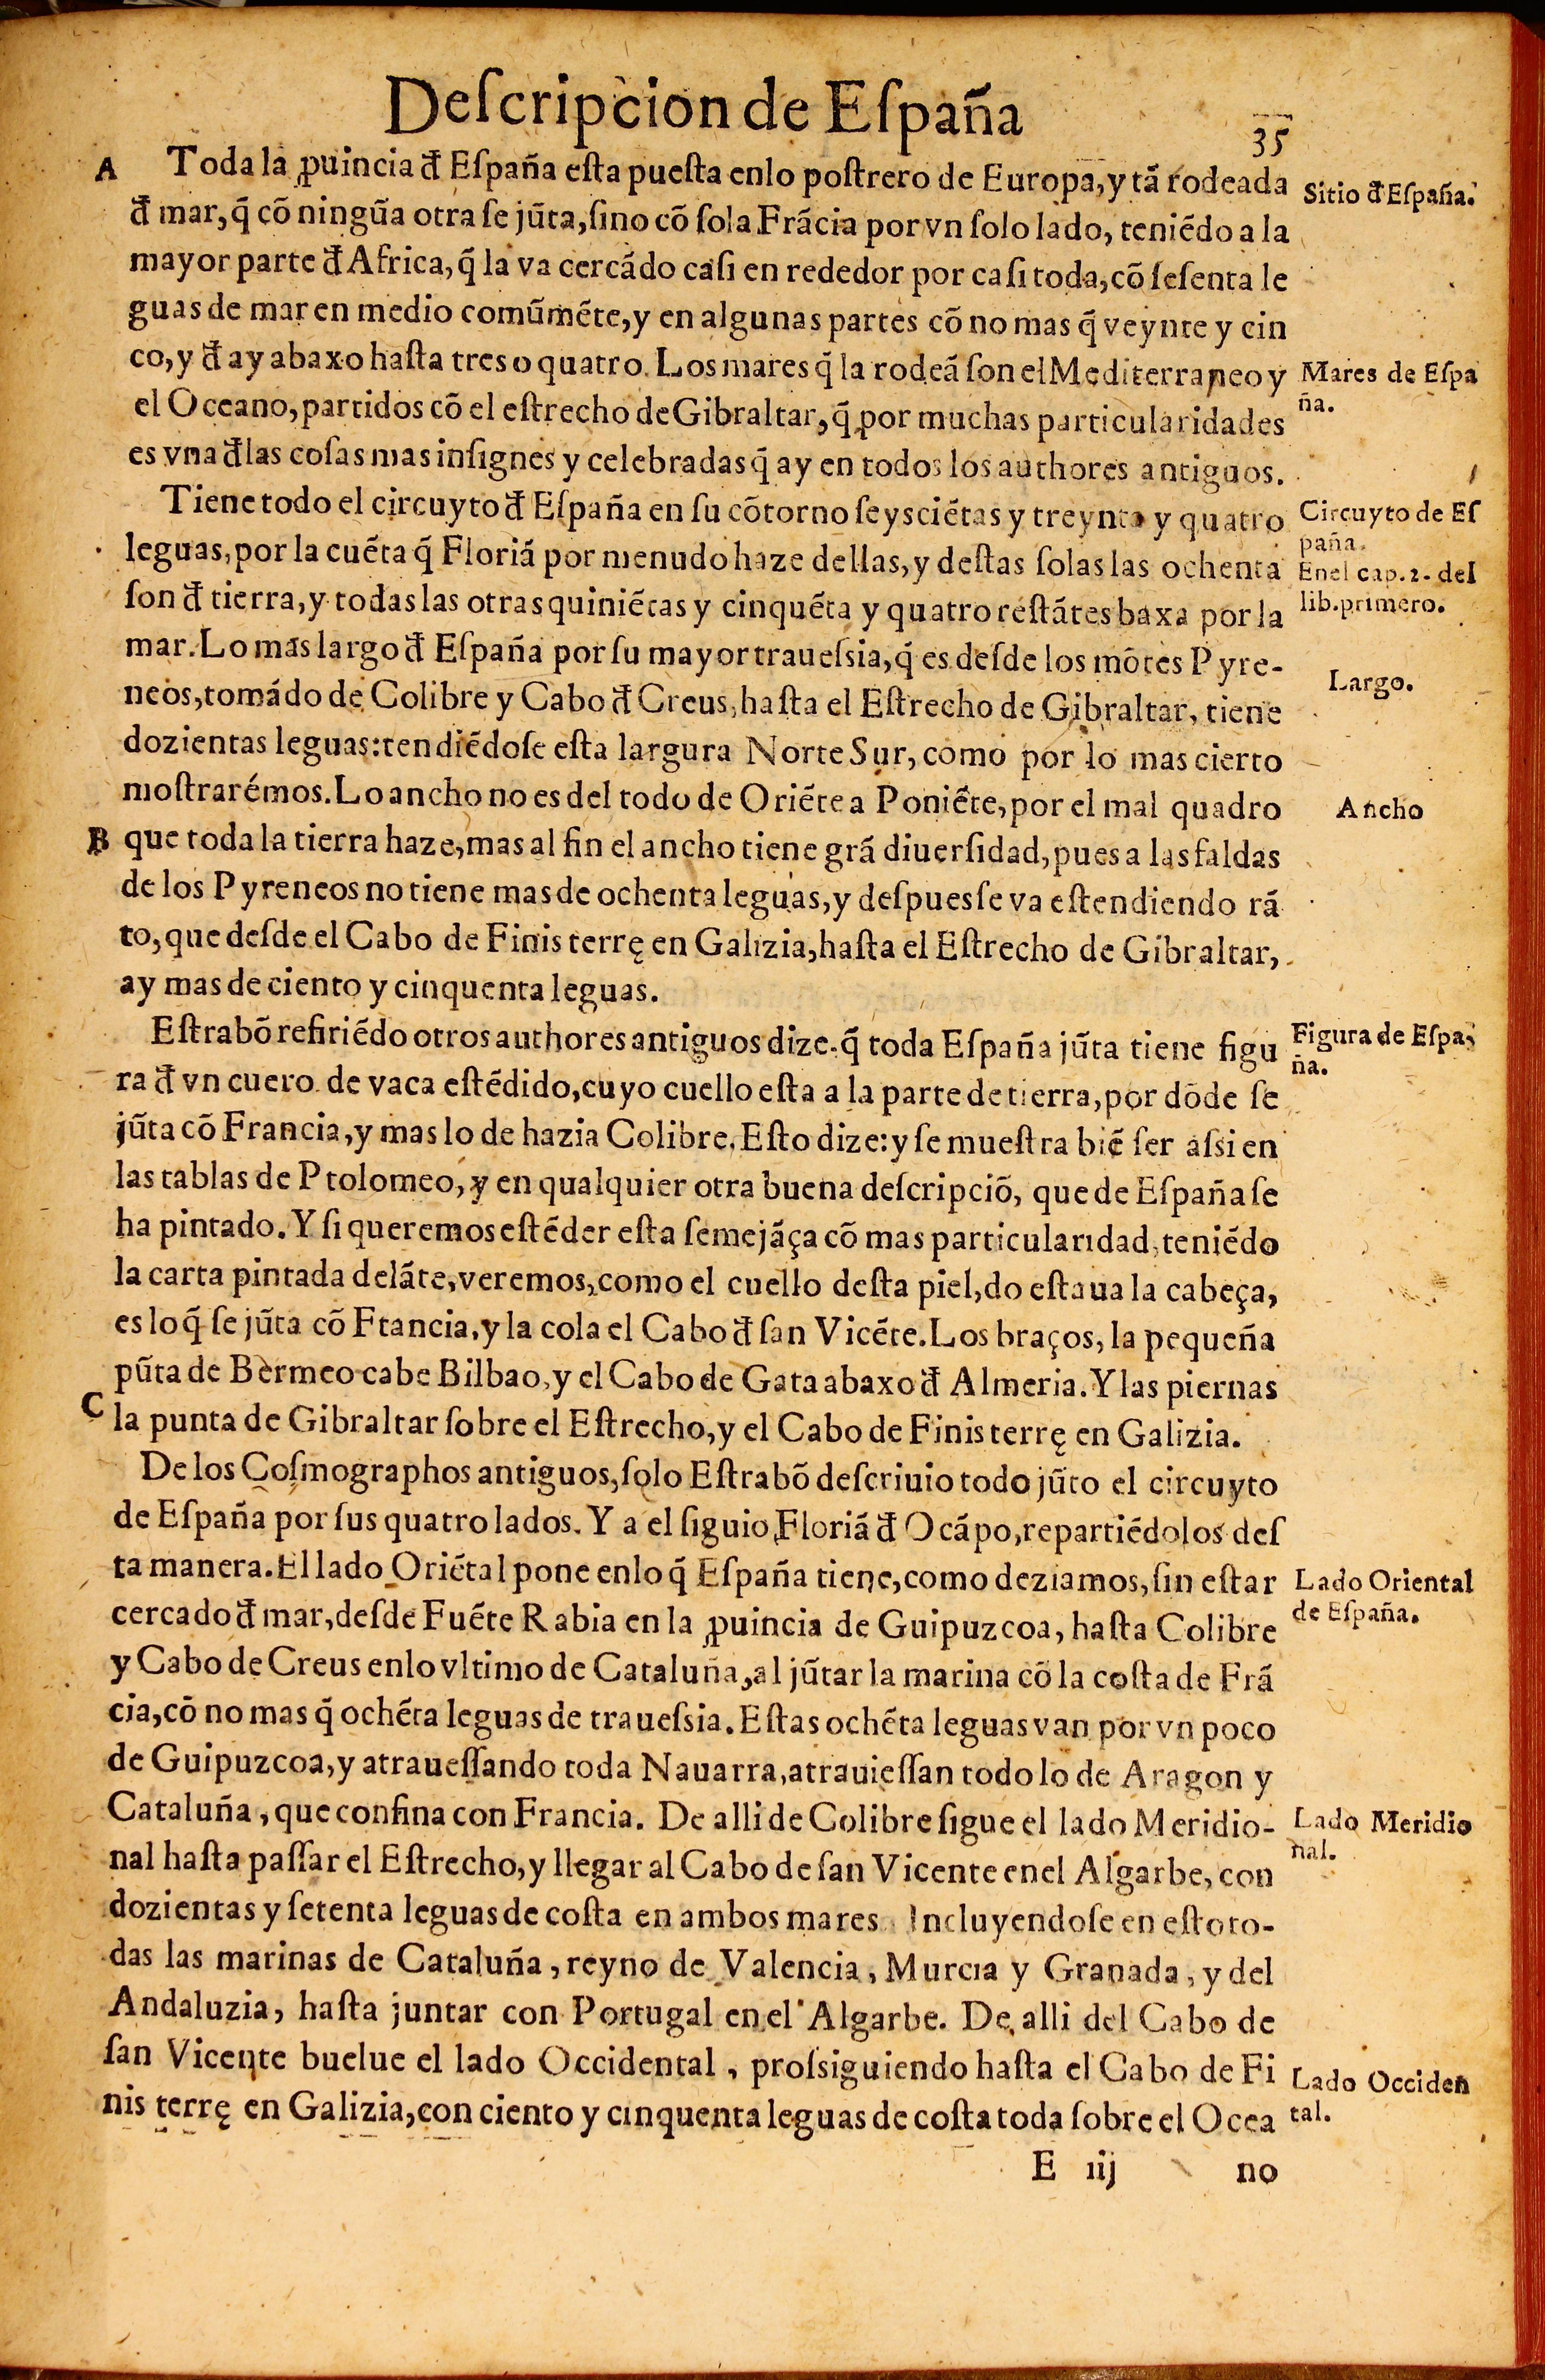 Deſcripcion de Eſpaña
35
A
Toda la ꝓuincia đ Eſpaña eſta pueſta enlo poſtrero de Europa, y tã rodeada
đ mar, q̃ cõ ningũa otra ſe jũta, ſino cõ ſola Frãcia por vn ſolo lado, teniẽdo a la
mayor parte đ Africa, q̃ la va cercãdo caſi en rededor por caſi toda, cõ ſeſenta le
guas de mar en medio comũmẽte, y en algunas partes cõ no mas q̃ veynte y cin
co, y đ ay abaxo haſta tres o quatro. Los mares q̃ la rodeã ſon el Mediterraneo y
el Oceano, partidos cõ el eſtrecho de Gibraltar, q̃ por muchas particularidades
es vna đlas coſas mas inſignes y celebradas q̃ ay en todos los authores antiguos.
Sitio đ Eſpaña.
Mares de Eſpa
ña.
Tiene todo el circuyto đ Eſpaña en ſu cõtorno ſeyſciẽtas y treynta y quatro
leguas, por la cuẽta q̃ Floriã por menudo haze dellas, y deſtas ſolas las ochenta
ſon đ tierra, y todas las otras quiniẽtas y cinquẽta y quatro reſtãtes baxa por la
mar. Lo mas largo đ Eſpaña por ſu mayor traueſsia, q̃ es deſde los mõtes Pyre-
neos, tomãdo de Colibre y Cabo đ Creus, haſta el Eſtrecho de Gibraltar, tiene
dozientas leguas: tendiẽdoſe eſta largura Norte Sur, como por lo mas cierto
moſtrarémos. Lo ancho no es del todo de Oriẽte a Poniẽte, por el mal quadro
B
que toda la tierra haze, mas al fin el ancho tiene grã diuerſidad, pues a las faldas
de los Pyreneos no tiene mas de ochenta leguas, y deſpues ſe va eſtendiendo tã
to, que deſde el Cabo de Finis terrę en Galizia, haſta el Eſtrecho de Gibraltar,
ay mas de ciento y cinquenta leguas.
Circuyto de Eſ
paña.
Enel cap. 2. del
lib. primero.
Largo.
Ancho
Eſtrabõ refiriẽdo otros authores antiguos dize. q̃ toda Eſpaña jũta tiene figu
ra đ vn cuero de vaca eſtẽdido, cuyo cuello eſta a la parte de tierra, por dõde ſe
jũta cõ Francia, y mas lo de hazia Colibre. Eſto dize: y ſe mueſtra biẽ ſer aſsi en
las tablas de Ptolomeo, y en qualquier otra buena deſcripciõ, que de Eſpaña ſe
ha pintado. Y ſi queremos eſtẽder eſta ſemejãça cõ mas particularidad, teniẽdo
la carta pintada delãte, veremos, como el cuello deſta piel, do eſtaua la cabeça,
es lo q̃ ſe jũta cõ Ftancia, y la cola el Cabo đ ſan Vicẽte. Los braços, la pequeña
pũta de Bermeo cabe Bilbao, y el Cabo de Gata abaxo đ Almeria. Y las piernas
C
la punta de Gibraltar ſobre el Eſtrecho, y el Cabo de Finis terrę en Galizia.
Figura de Eſpa,
ña.
De los Coſmographos antiguos, ſolo Eſtrabõ deſcriuio todo jũto el circuyto
de Eſpaña por ſus quatro lados. Y a el ſiguio Floriã đ Ocãpo, repartiẽdolos deſ
ta manera. El lado Oriẽtal pone enlo q̃ Eſpaña tiene, como deziamos, ſin eſtar
cercado đ mar, deſde Fuẽte Rabia en la ꝓuincia de Guipuzcoa, haſta Colibre
y Cabo de Creus enlo vltimo de Cataluña, al jũtar la marina cõ la coſta de Frã
cia, cõ no mas q̃ ochẽta leguas de traueſsia. Eſtas ochẽta leguas van por vn poco
de Guipuzcoa, y atraueſſando toda Nauarra, atrauieſſan todo lo de Aragon y
Cataluña, que confina con Francia. De alli de Colibre ſigue el lado Meridio-
nal haſta paſſar el Eſtrecho, y llegar al Cabo de ſan Vicente enel Algarbe, con
dozientas y ſetenta leguas de coſta en ambos mares. Incluyendoſe en eſto to-
das las marinas de Cataluña, reyno de Valencia, Murcia y Granada, y del
Andaluzia, haſta juntar con Portugal en el Algarbe. De alli del Cabo de
ſan Vicente buelue el lado Occidental, proſsiguiendo haſta el Cabo de Fi
nis terrę en Galizia, con ciento y cinquenta leguas de coſta toda ſobre el Ocea
Lado Oriental
de Eſpaña.
Lado Meridio
nal.
Lado Occiden
tal.
E iij
no